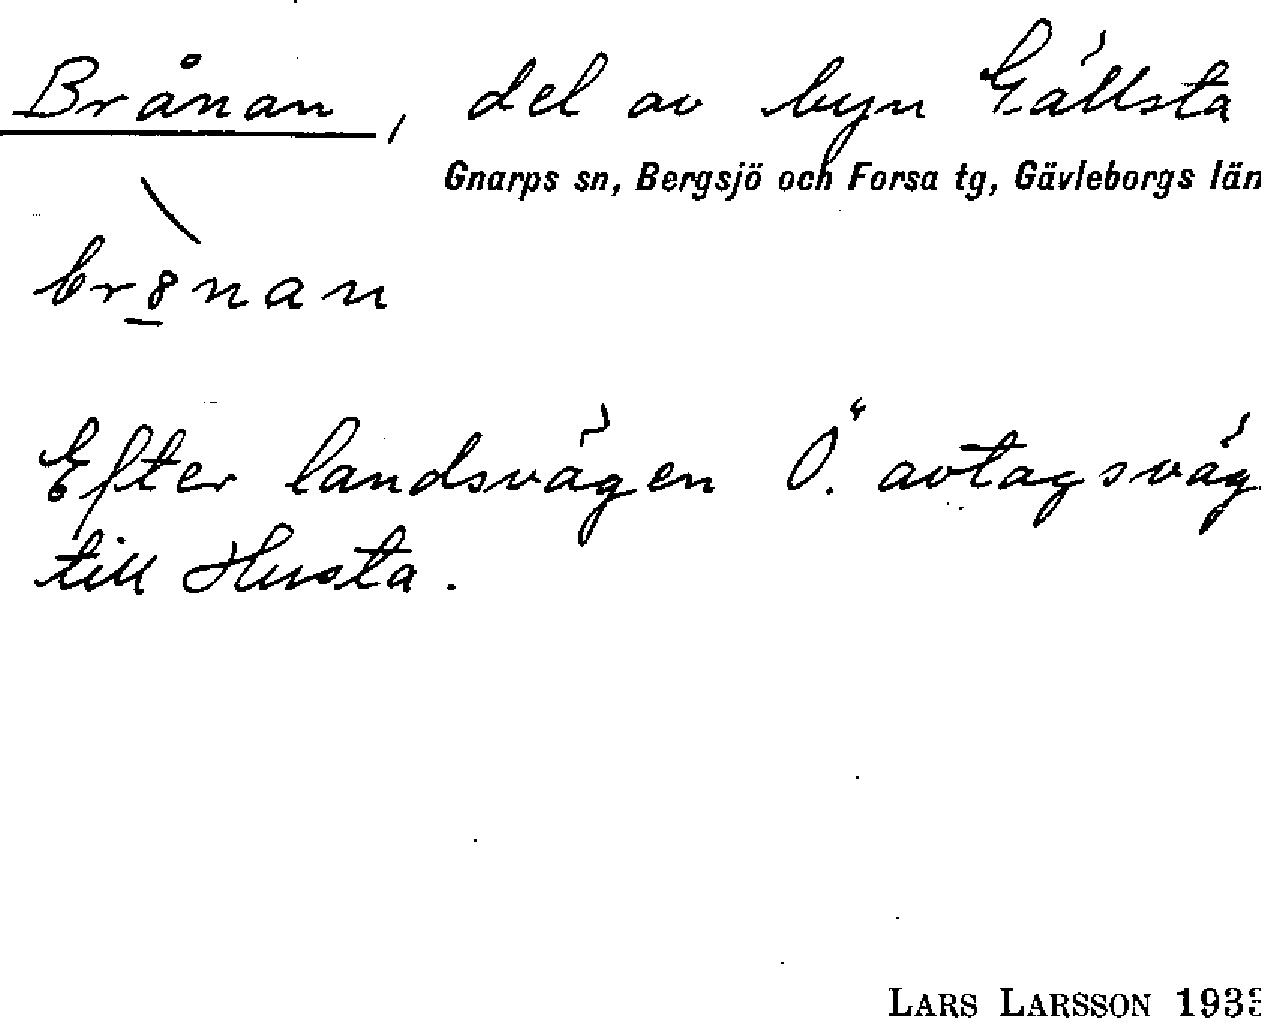 Brånan, del av byn Gällsta
Gnarps sn, Bergsjö och Forsa tg, Gävleborgs län
br8nan
Efter landsvägen Ö. avtagsväg
till Husta.
LARS LARSSON 1933